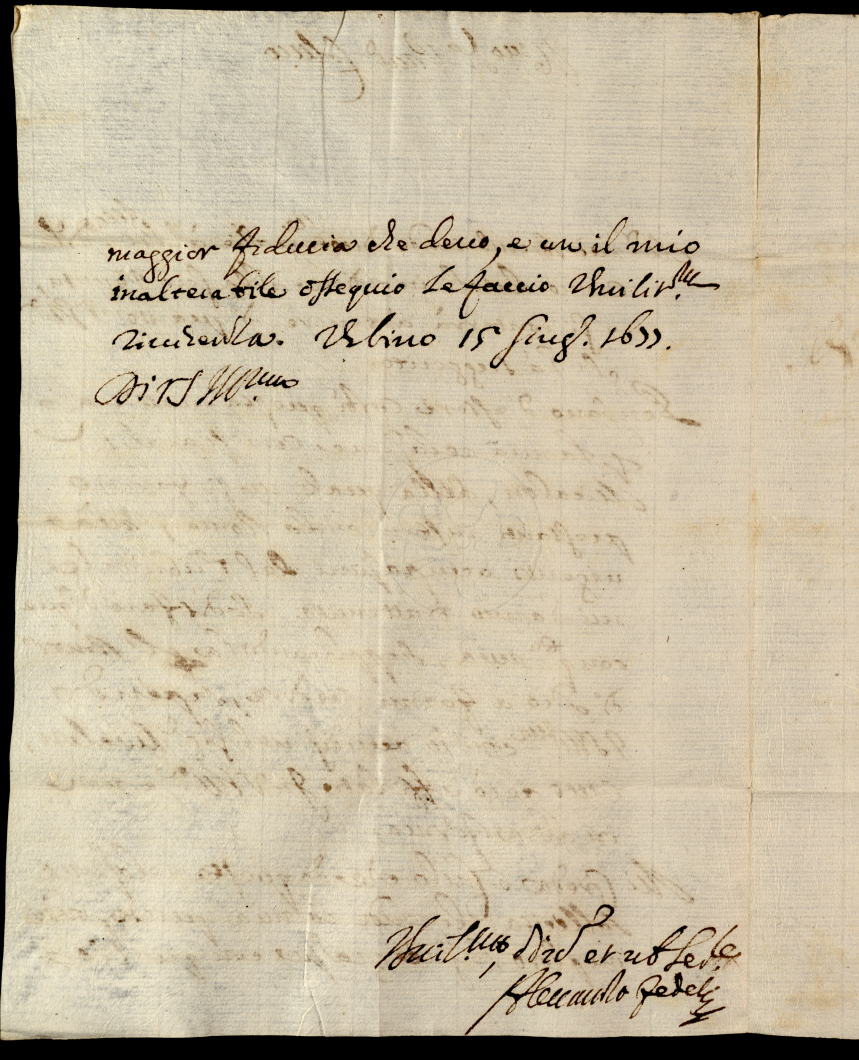 maggior fiducia che devo, e con il mio
inalterabile ossequio le faccio Umilis.ma
riverenza. Urbino 15 Giug. 1677.
Di VS Ill.ma
Umil.mo, Div. et ob Ser.re
Alessandro Fedeli